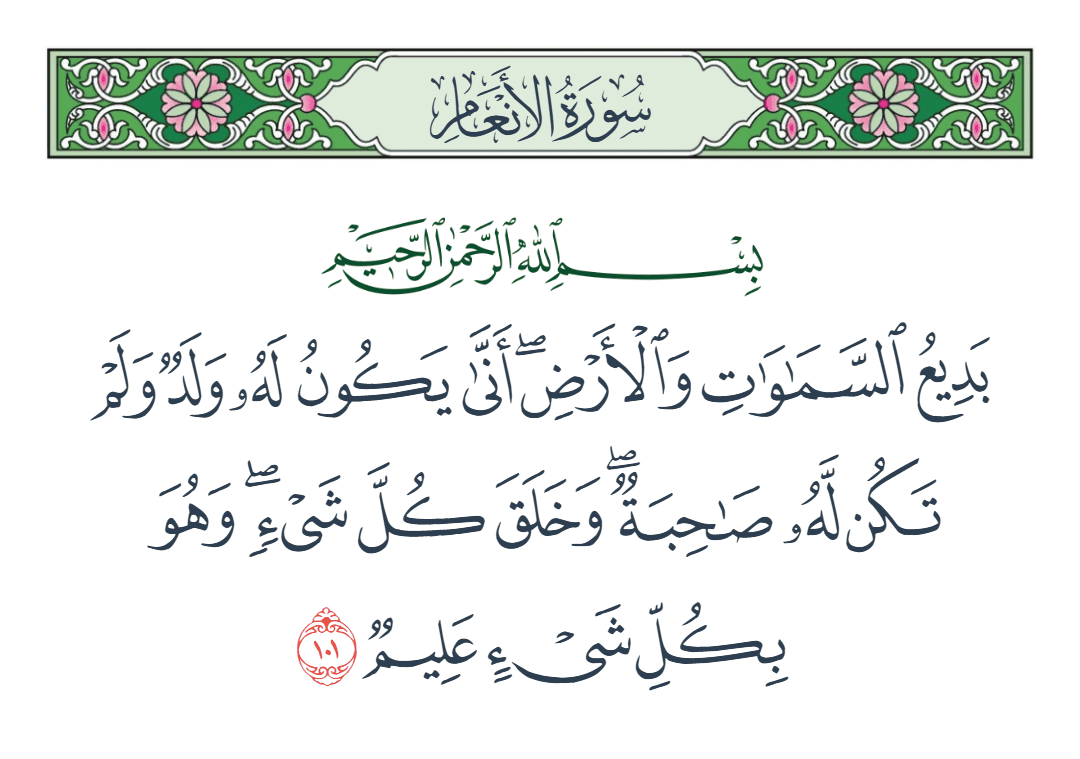 سُورَةُ الأَنْعَامِ
بِسْمِ ٱللَّهِ ٱلرَّحْمَٰنِ ٱلرَّحِيمِ
بَدِيعُ ٱلسَّمَٰوَٰتِ وَٱلْأَرْضِ ۖ أَنَّىٰ يَكُونُ لَهُۥ وَلَدٌ وَلَمْ
تَكُن لَّهُۥ صَٰحِبَةٌ ۖ وَخَلَقَ كُلَّ شَىْءٍ ۖ وَهُوَ
بِكُلِّ شَىْءٍ عَلِيمٌ ١٠١